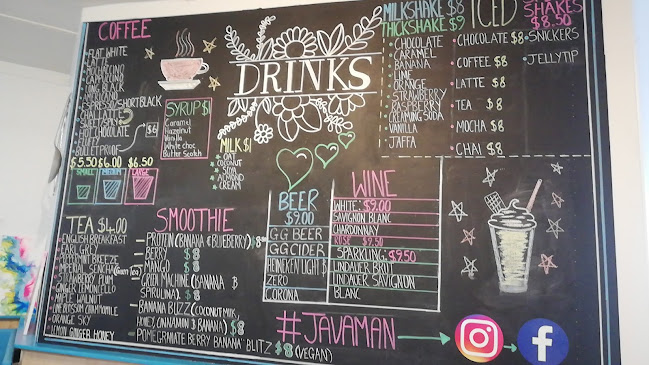 COFFEE
FLAT WHITE
LATTE
MOCHACCINO
CAPPUCCINO
LONG BLACK
ESPRESSO/SHORTBLACK
CHAI LATTE
HOT CHOCOLATE
FLUFFY
BULLETPROOF $8
$5.50 $6.00 $6.50
SMALL MEDIUM LARGE
SYRUP $1
Caramel
Hazelnut
Vanilla
White choc
Butter Scotch
DRINKS
MILK $1
OAT
COCONUT
SOYA
ALMOND
CREAM
MILKSHAKE $8
THICKSHAKE $9
CHOCOLATE
CARAMEL
BANANA
LIME
ORANGE
STRAWBERRY
RASPBERRY
CREAMING SODA
VANILLA
JAFFA
ICED
CHOCOLATE $8
COFFEE $8
LATTE $8
TEA $8
MOCHA $8
CHAI $8
SHAKES
$8.50
SNICKERS
JELLYTIP
TEA $4.00
ENGLISH BREAKFAST
EARL GREY
IMPERIAL SENCHA (Green Tea)
GINGER LEMONTEI
MAPLE WALNUT
ORANGE SKY
LEMON GINGER HONEY
SMOOTHIE
PROTEIN (BANANA & BLUEBERRY) $8
BERRY $8
MANGO $8
GREEN MACHINE (BANANA &
SPIRULINA) $8
BANANA BLITZ (COCONUT MILK,
HONEY, CINNAMON & BANANA) $8
POMEGRANATE BERRY BANANA BLITZ $8 (VEGAN)
BEER
$9.00
GG BEER
GG CIDER
HEINEKEN LIGHT &
ZERO
CORONA
WINE
WHITE: $9.00
SAVIGNON BLANC
CHARDONNAY
ROSE $9.50
SPARKLING: $9.50
LINDAUER BRUT
LINDAUER SAVIGNON
BLANC
#JAVAMAN